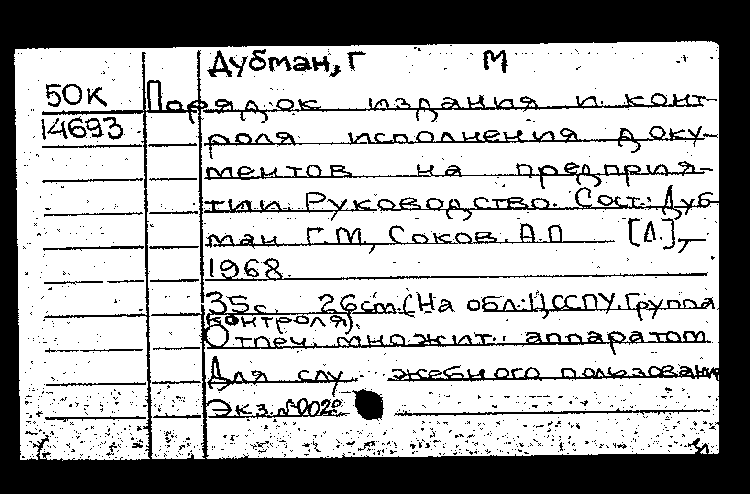 Дубман, Г М
50к Порядок издания и конт-
14693 роля исполнения доку-
ментов на предприя-
тии. Руководство. Сост: Дуб-
ман Г.М, Соков. А.П [Л.],
1968.
35с. 26cm. (На обл:1), ССПУ. Группа
контроля).
Отпеч. множит. аппаратом
Для слу жебного пользован
Экз. №0022